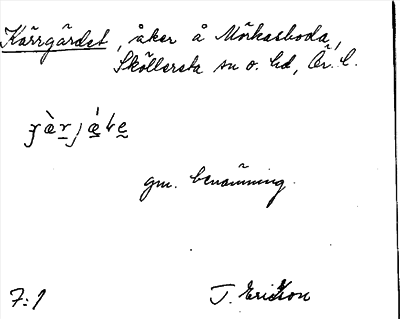 Kärrgärdet, åker å Mörkasboda,
Sköllersta sn o. hd, Ör. l.
gm. benämning.
7:1
J. Erikson